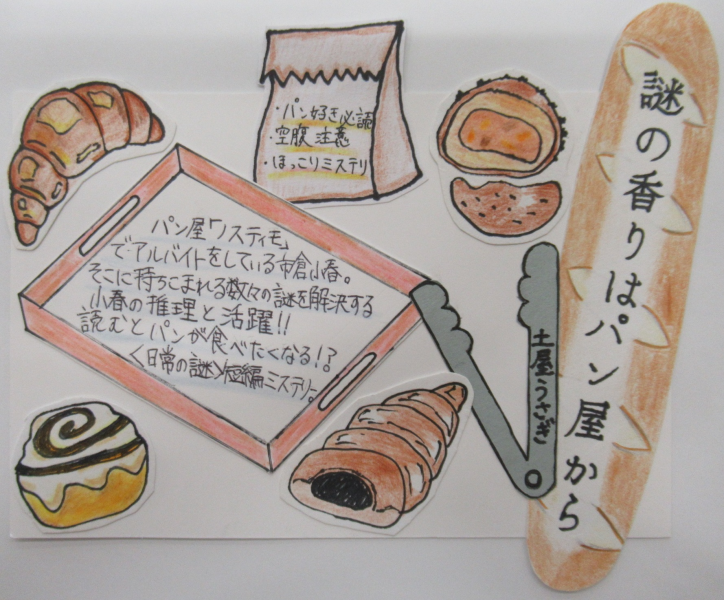 謎の香りはパン屋から
土屋うさぎ
・パン好き必読
・空腹注意
・ほっこりミステリ
パン屋「ノスティモ」
でアルバイトをしている市倉小春。
そこに持ちこまれる数々の謎を解決する
小春の推理と活躍!!
読むとパンが食べたくなる!?
〈日常の謎〉短編ミステリー。